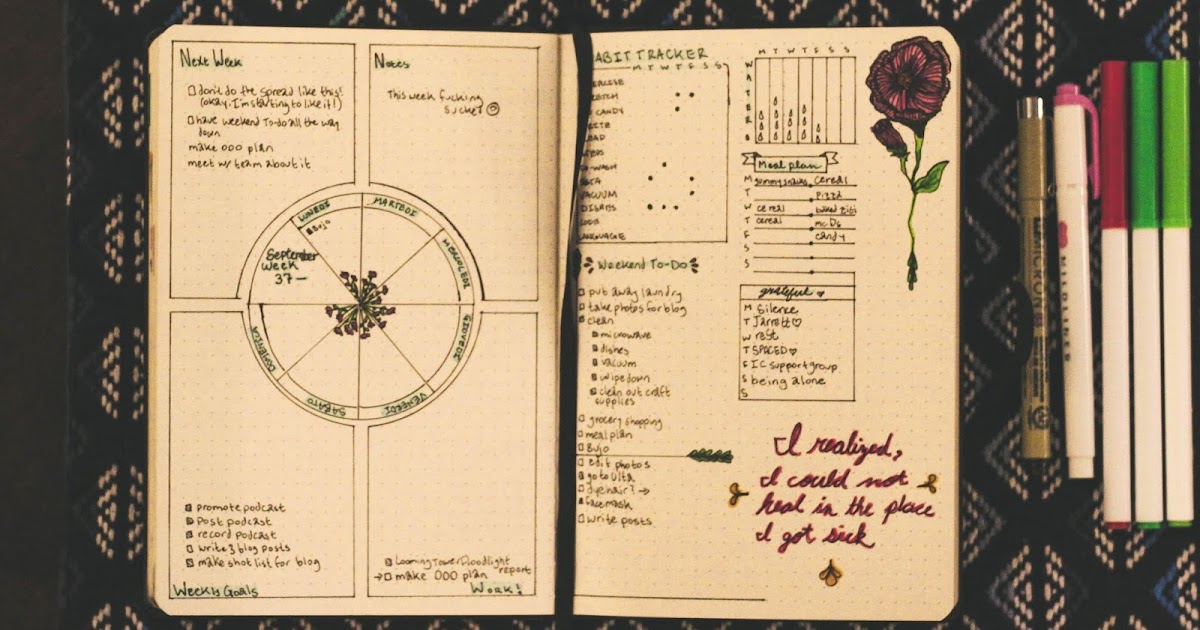 Next Week
don't do the spread like this!
(okay, I'm starting to like it!)
have weekend to-do all the way
down
make OOO plan
meet w/ team about it
Notes
This week fucking
sucked
LUNEDI
MARTEDI
MERCOLEDI
GIOVEDI
VENERDI
SABATO
DOMENICA
Bujo
September
Week
37
promote podcast
post podcast
record podcast
write 3 blog posts
make shot list for blog
Weekly Goals
Looming Tower Floodlight
report
make OOO plan
Work!
ABIT TRACKER
M T W T F S S
CANDY
VACUUM
DISHES
LANGUAGE
Weekend To-Do
put away laundry
take photos for blog
clean
microwave
dishes
vacuum
wipe down
clean out craft
supplies
grocery shopping
meal plan
Bujo
edit photos
go to Ulta
dye hair?
facemask
write posts
M T W T F S S
WATERS
Meal plan
M gummy snacks cereal
T pizza
W cereal baked ziti
T cereal mcDs
F candy
S
S
grateful
M Silence
T Jarrett
W rest
T SPACED
F IC support group
S being alone
S
I realized,
I could not
heal in the place
I got sick
MICRON
MILDLINER